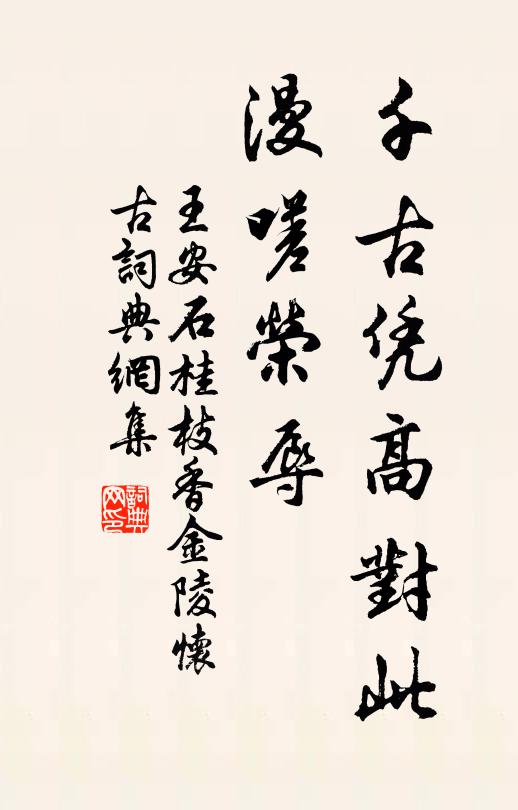 千古凭高對此
漫嗟榮辱
王安石桂枝香金陵懷
古詞典網集
詞典网印